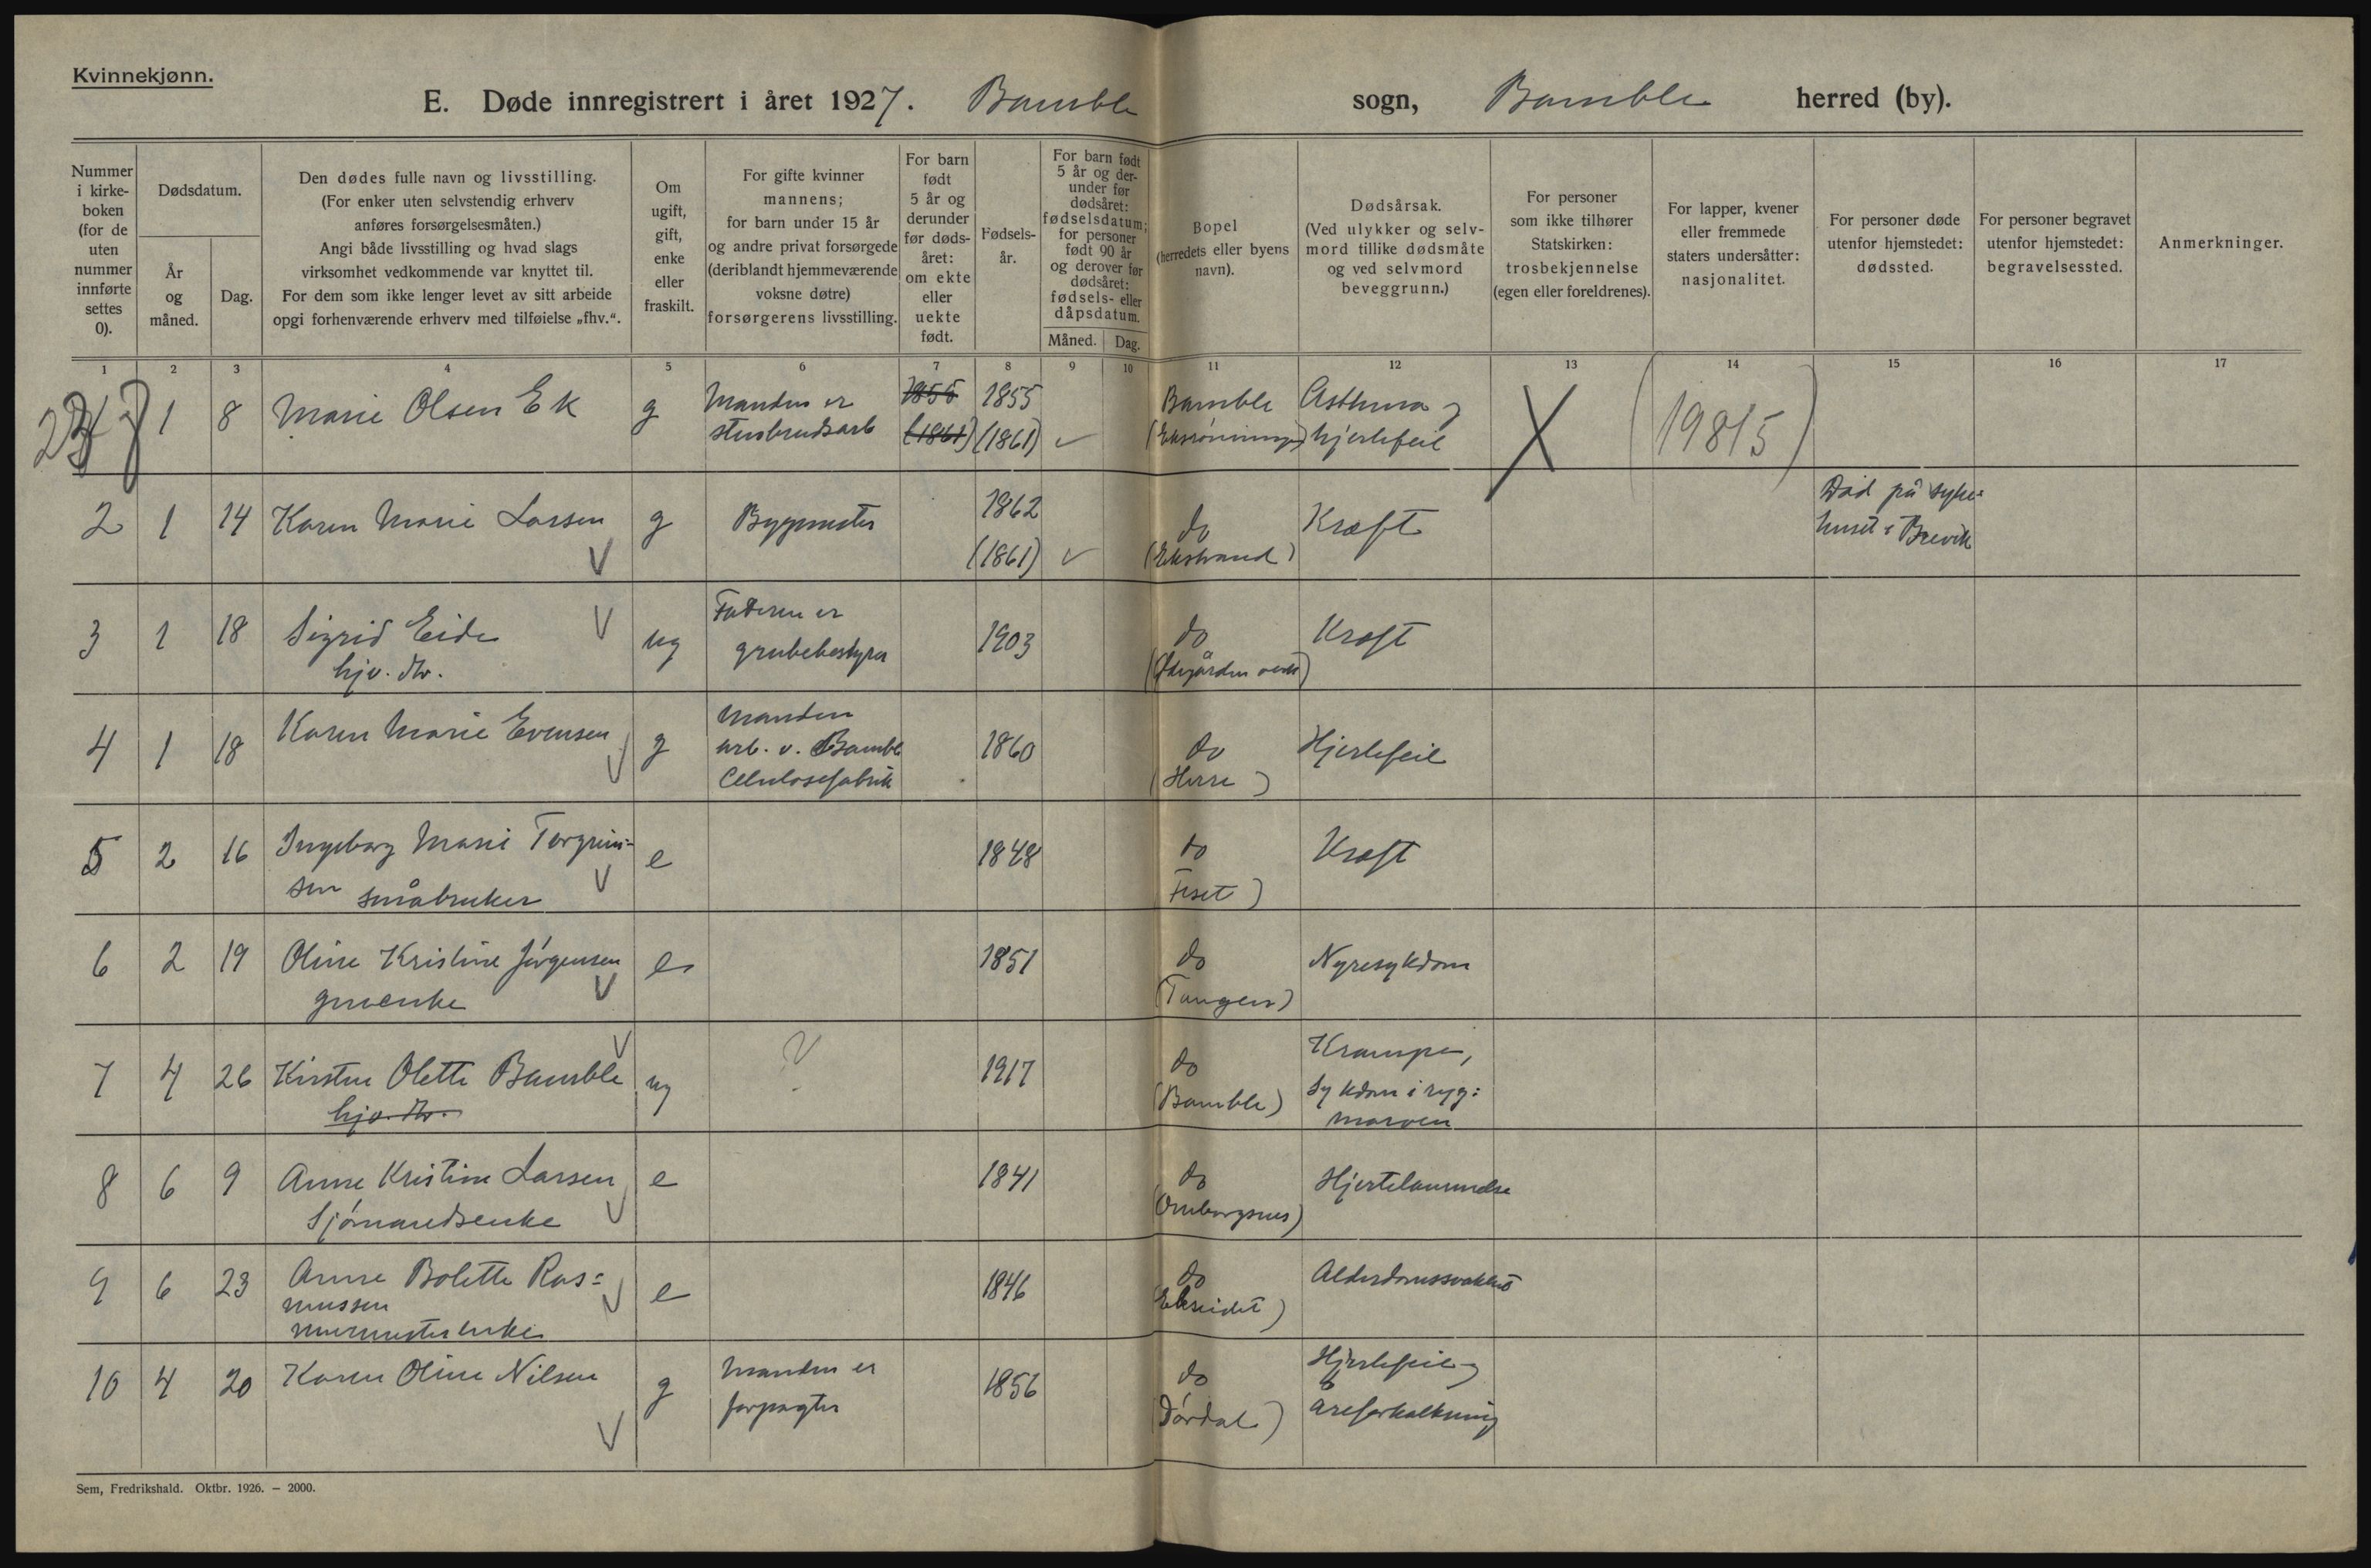 Kvinnekjønn.
E. Døde innregistrert i året 1927. Bamble sogn, Bamble herred (by).
Nummer i kirkeboken (for de uten nummer innførte settes 0).
Dødsdatum.
År og måned.
Dag.
Den dødes fulle navn og livsstilling.
(For enker uten selvstendig erhverv
anføres forsørgelsesmåten.)
Angi både livsstilling og hvad slags
virksomhet vedkommende var knyttet til.
For dem som ikke lenger levet av sitt arbeide
opgi forhenværende erhverv med tilføielse „fhv.“.
Om
ugift,
gift,
enke
eller
fraskilt.
For gifte kvinner
mannens;
for barn under 15 år
og andre privat forsørgede
(deriblandt hjemmeværende
voksne døtre)
forsørgerens livsstilling.
For barn
født
5 år og
derunder
før døds-
året:
om ekte
eller
uekte
født.
Fødsels-
år.
For barn født
5 år og der-
under før
dødsåret:
fødselsdatum;
for personer
født 90 år
og derover før
dødsåret:
fødsels- eller
dåpsdatum.
Måned. Dag.
Bopel
(herredets eller byens
navn).
Dødsårsak.
(Ved ulykker og selv-
mord tillike dødsmåte
og ved selvmord
beveggrunn.)
For personer
som ikke tilhører
Statskirken:
trosbekjennelse
(egen eller foreldrenes).
For lapper, kvener
eller fremmede
staters undersåtter:
nasjonalitet.
For personer døde
utenfor hjemstedet:
dødssted.
For personer begravet
utenfor hjemstedet:
begravelsessted.
Anmerkninger.
1 2 3 4 5 6 7 8 9 10 11 12 13 14 15 16 17
1 8 Marie Olsen Ek g Manden er 1855 1855 Bamble Asthma
(1861) (1861) hjertefeil (19815)
2 1 14 Karen Marie Larsen g Byggmester 1862 do Kræft Død på syke-
(1861) (Ekstrand) huset i Brevik
3 1 18 Sigrid Eide ug Faderen er 1903 do Kræft
hjv. dtr. grubebestyrer
4 1 18 Karen Marie Evensen g Manden 1860 do Hjertefeil
arb. v. Bamble (Herre)
Cellulosefabrik
5 2 16 Ingeborg Marie Torgrim- e 1848 do Kræft
sen småbruker
6 2 19 Oline Kristine Jörgensen e 1851 do Nyresykdom
(Tangen)
7 4 26 Kirsten Olette Bamble ug ? 1917 do Krampe,
hjv. dtr. (Bamble) Sykdom i ryg-
marven
8 6 9 Anne Kristine Larsen e 1841 do Hjertelammelse
Sjømandsenke
9 6 23 Anne Bolette Ras- e 1846 do Alderdomssvakhet
mussen
murmesterenke
10 4 20 Karen Oline Nilsen g Manden er 1856 do Hjertefeil
forpagter (Dördal) åreforkalkning
Sem, Fredrikshald. Oktbr. 1926. — 2000.